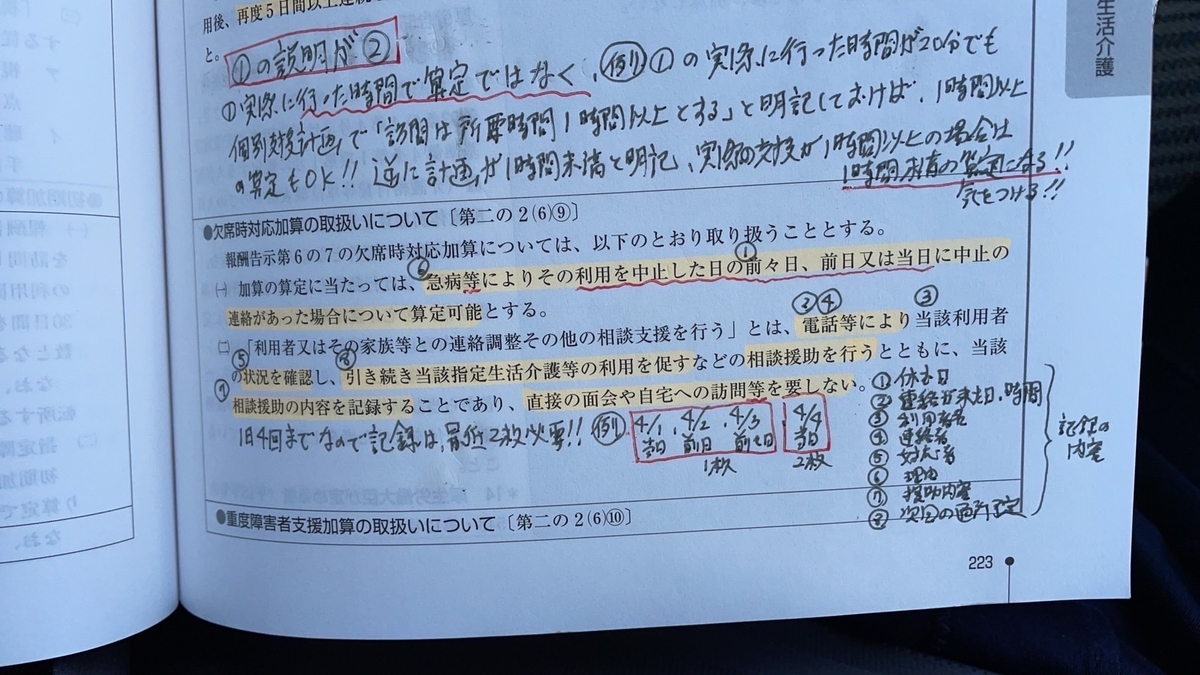 用後、再度5日間以上連続
と。
①の説明が②
①の実際に行った時間で算定ではなく、例)①の実際に行った時間が20分でも
個別支援計画で「訪問は所要時間1時間以上とする」と明記しておけば、1時間以上
の算定もOK!! 逆に計画が1時間未満と明記、実際の支援が1時間以上の場合は
1時間未満の算定になる!!
気をつける!!
●欠席時対応加算の取扱いについて〔第二の2(6)⑨〕
報酬告示第6の7の欠席時対応加算については、以下のとおり取り扱うこととする。
㈠ 加算の算定に当たっては、急病等によりその利用を中止した日の前々日、前日又は当日に中止の
連絡があった場合について算定可能とする。
㈡ 「利用者又はその家族等との連絡調整その他の相談支援を行う」とは、電話等により当該利用者
の状況を確認し、引き続き当該指定生活介護等の利用を促すなどの相談援助を行うとともに、当該
相談援助の内容を記録することであり、直接の面会や自宅への訪問等を要しない。
1日4回までなので記録は、最低2枚必要!! 例) 4/1 当日、4/2 前日、4/3 前々日 1枚 4/4 当日 2枚
①休む日
②連絡が来た日、時間
③利用者名
④連絡者
⑤対応者
⑥理由
⑦援助内容
⑧次回の通所予定
記録の内容
●重度障害者支援加算の取扱いについて〔第二の2(6)⑩〕
223
生活介護